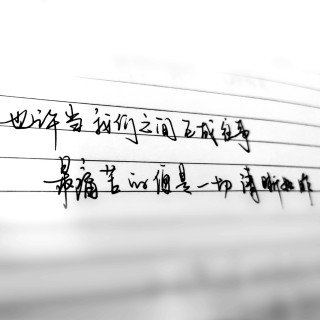 也许当我们之间已成往事
最痛苦的便是一切清晰如昨